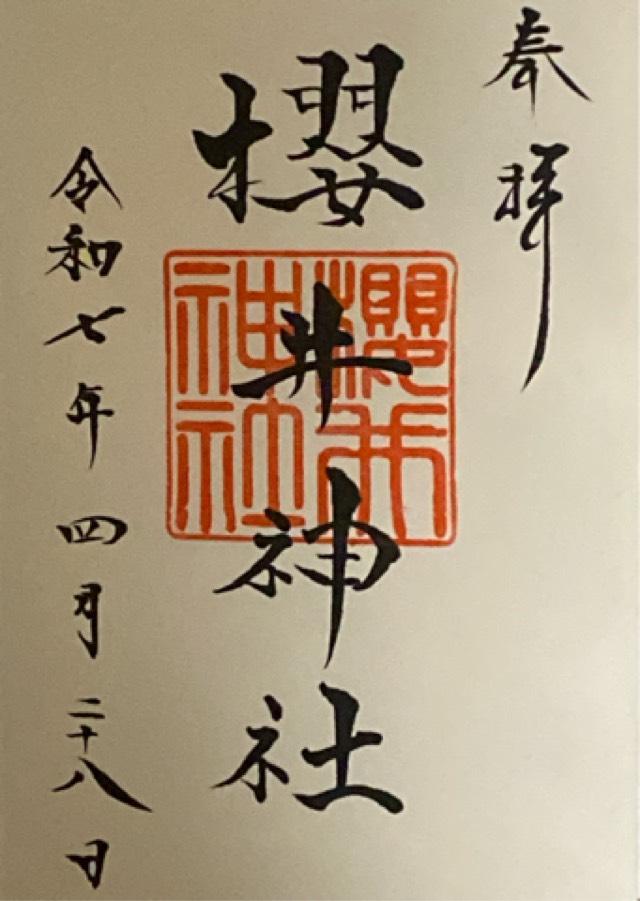 奉拝
櫻井神社
櫻井神社
令和七年四月二十八日